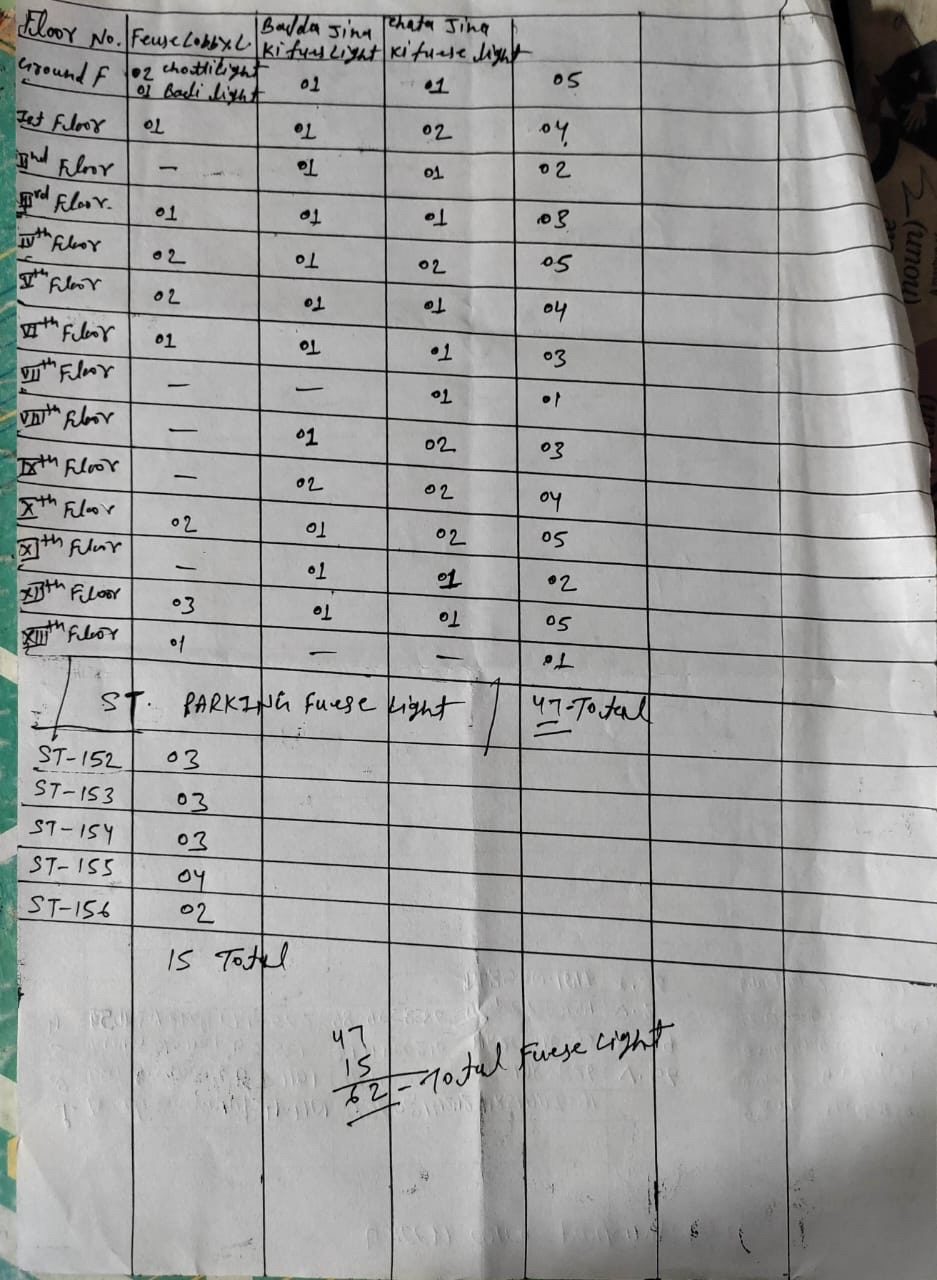 Floor No. Feuse Lobby L. Badda Jina Ki fues Light Chata Jina Ki fuese light
Ground F 02 chotti light 01 01 05
01 Badi light
Ist Floor 01 01 02 04
IInd Floor — 01 01 02
IIIrd Floor. 01 01 01 03
IVth Floor 02 01 02 05
Vth Floor 02 01 01 04
VIth Floor 01 01 01 03
VIIth Floor — — 01 01
VIIIth Floor — 01 02 03
IXth Floor — 02 02 04
Xth Floor 02 01 02 05
XIth Floor — 01 01 02
XIIth Floor 03 01 01 05
XIIIth Floor 01 — — 01
ST. PARKING Fuese Light 47-Total
ST-152 03
ST-153 03
ST-154 03
ST-155 04
ST-156 02
15 Total
47
15
62 - Total Fuese Light